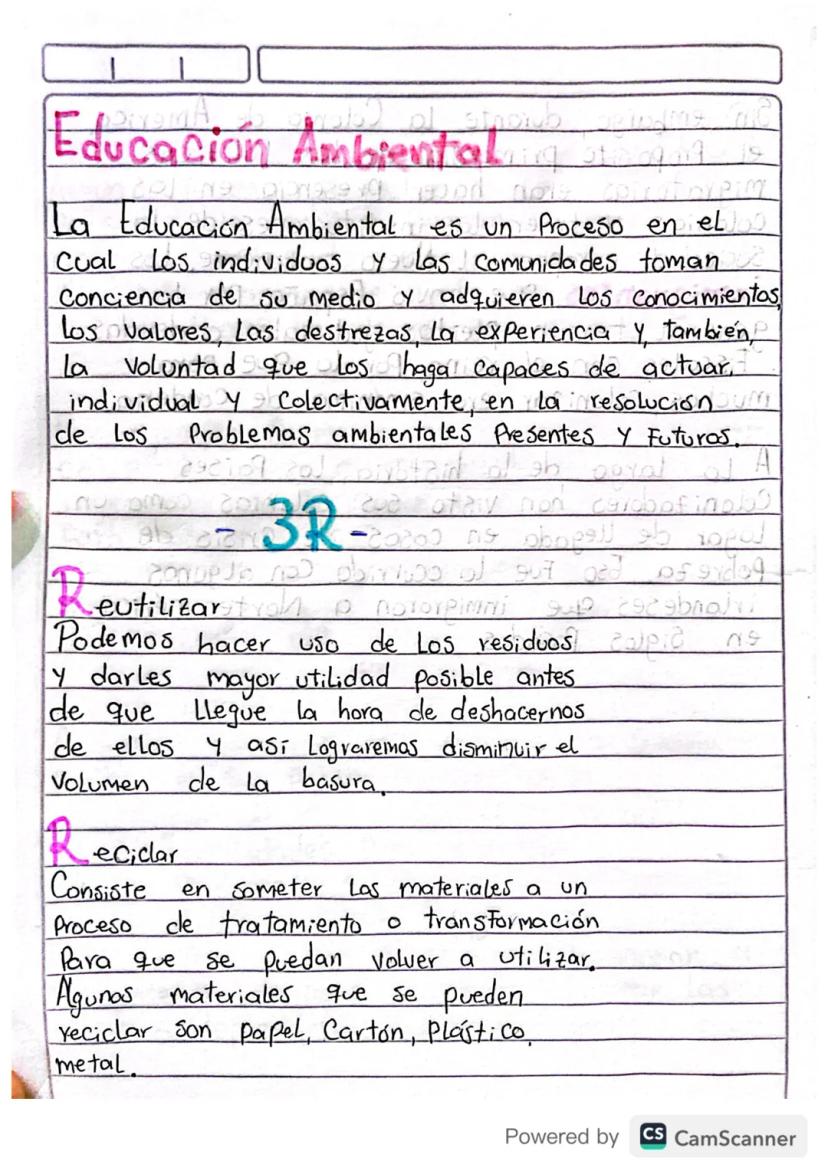 Educación Ambiental
La Educación Ambiental es un Proceso en el
cual los individuos y las comunidades toman
conciencia de su medio y adquieren los conocimientos,
los valores, las destrezas, la experiencia y, también,
la voluntad que los haga capaces de actuar,
individual y colectivamente, en la resolución
de los Problemas ambientales Presentes y Futuros.
- 3R -
Reutilizar
Podemos hacer uso de los residuos
y darles mayor utilidad posible antes
de que llegue la hora de deshacernos
de ellos y así lograremos disminuir el
volumen de la basura.
Reciclar
Consiste en someter los materiales a un
Proceso de tratamiento o transformación
Para que se puedan volver a utilizar.
Algunos materiales que se pueden
reciclar son papel, Cartón, Plástico,
metal.
Powered by CS CamScanner